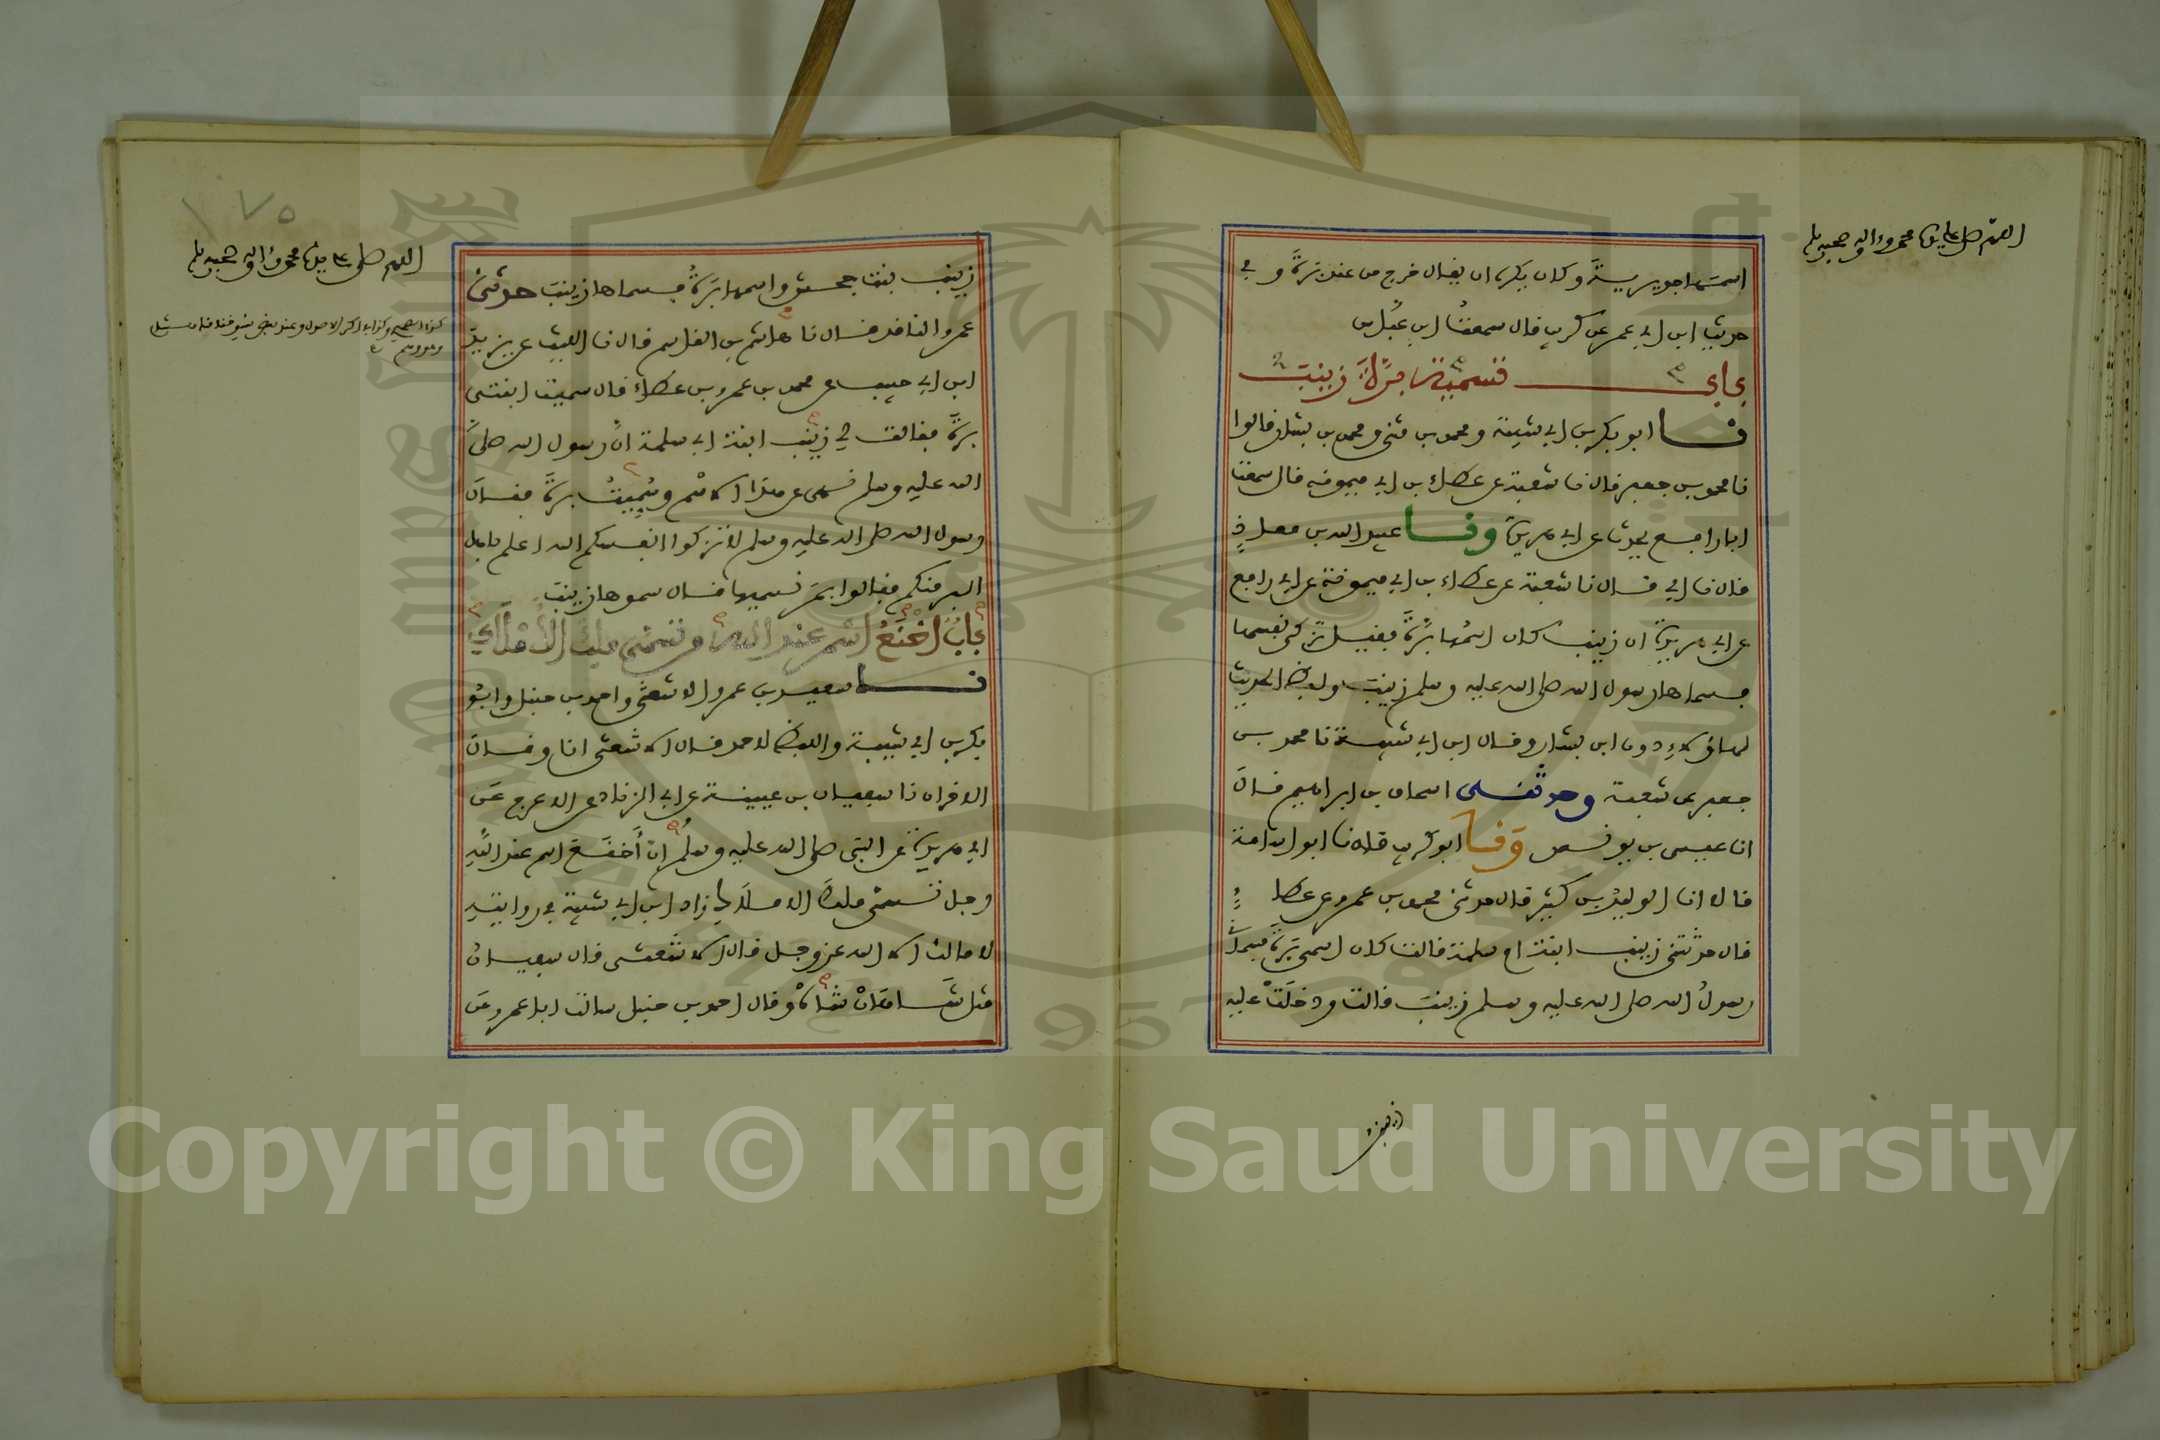 اللهم صل على سيدنا محمد وءاله وصحبه وسلم
اسمها جويرية وكان يكره ان يقال خرج من عند برة وفي
حديث ابن ابي عمر عن كريب قال سمعت ابن عباس
باب تسمية برة زينب
نا ابو بكر بن ابي شيبة ومحمد بن مثنى ومحمد بن بشار قالوا
نا محمد بن جعفر قال نا شعبة عن عطاء بن ابي ميمونة قال سمعت
ابا رافع يحدث عن ابي هريرة ونا عبيد الله بن معاذ
قال نا ابي قال نا شعبة عن عطاء بن ابي ميمونة عن ابي رافع
عن ابي هريرة ان زينب كان اسمها برة فقيل تزكي نفسها
فسماها رسول الله صلى الله عليه وسلم زينب ولفظ الحديث
لهاؤلاء دون ابن بشار وقال ابن ابي شيبة نا محمد بن
جعفر عن شعبة وحدثني اسحاق بن ابراهيم قال
انا عيسى بن يونس ونا ابو كريب قال نا ابو اسامة
قالا نا الوليد بن كثير قال حدثني محمد بن عمرو بن عطاء
قال حدثتني زينب ابنة ام سلمة قالت كان اسمي برة فسماني
رسول الله صلى الله عليه وسلم زينب قالت ودخلت عليه
زينب
١٧٥
اللهم صل على سيدنا محمد وءاله وصحبه وسلم
زينب بنت جحش واسمها برة فسماها زينب حدثني
عمرو الناقد قال نا هاشم بن القاسم قال نا الليث عن يزيد
ابن ابي حبيب عن محمد بن عمرو بن عطاء قال سميت ابنتي
برة فقالت لي زينب ابنة ابي سلمة ان رسول الله صلى
الله عليه وسلم نهى عن هذا الاسم وسميت برة فقال
رسول الله صلى الله عليه وسلم لا تزكوا انفسكم الله اعلم باهل
البر منكم فقالوا بم نسميها قال سموها زينب
باب اخنع اسم عند الله من تسمى ملك الاملاك
نا سعيد بن عمرو الاشعثي واحمد بن حنبل وابو
بكر بن ابي شيبة واللفظ لاحمد قال الاشعثي انا وقال
الاخران نا سفيان بن عيينة عن ابي الزناد عن الاعرج عن
ابي هريرة عن النبي صلى الله عليه وسلم ان اخنع اسم عند الله
رجل تسمى ملك الاملاك زاد ابن ابي شيبة في روايته
لا مالك الا الله عز وجل قال الاشعثي قال سفيان
مثل شاهان شاه وقال احمد بن حنبل سالت ابا عمرو عن